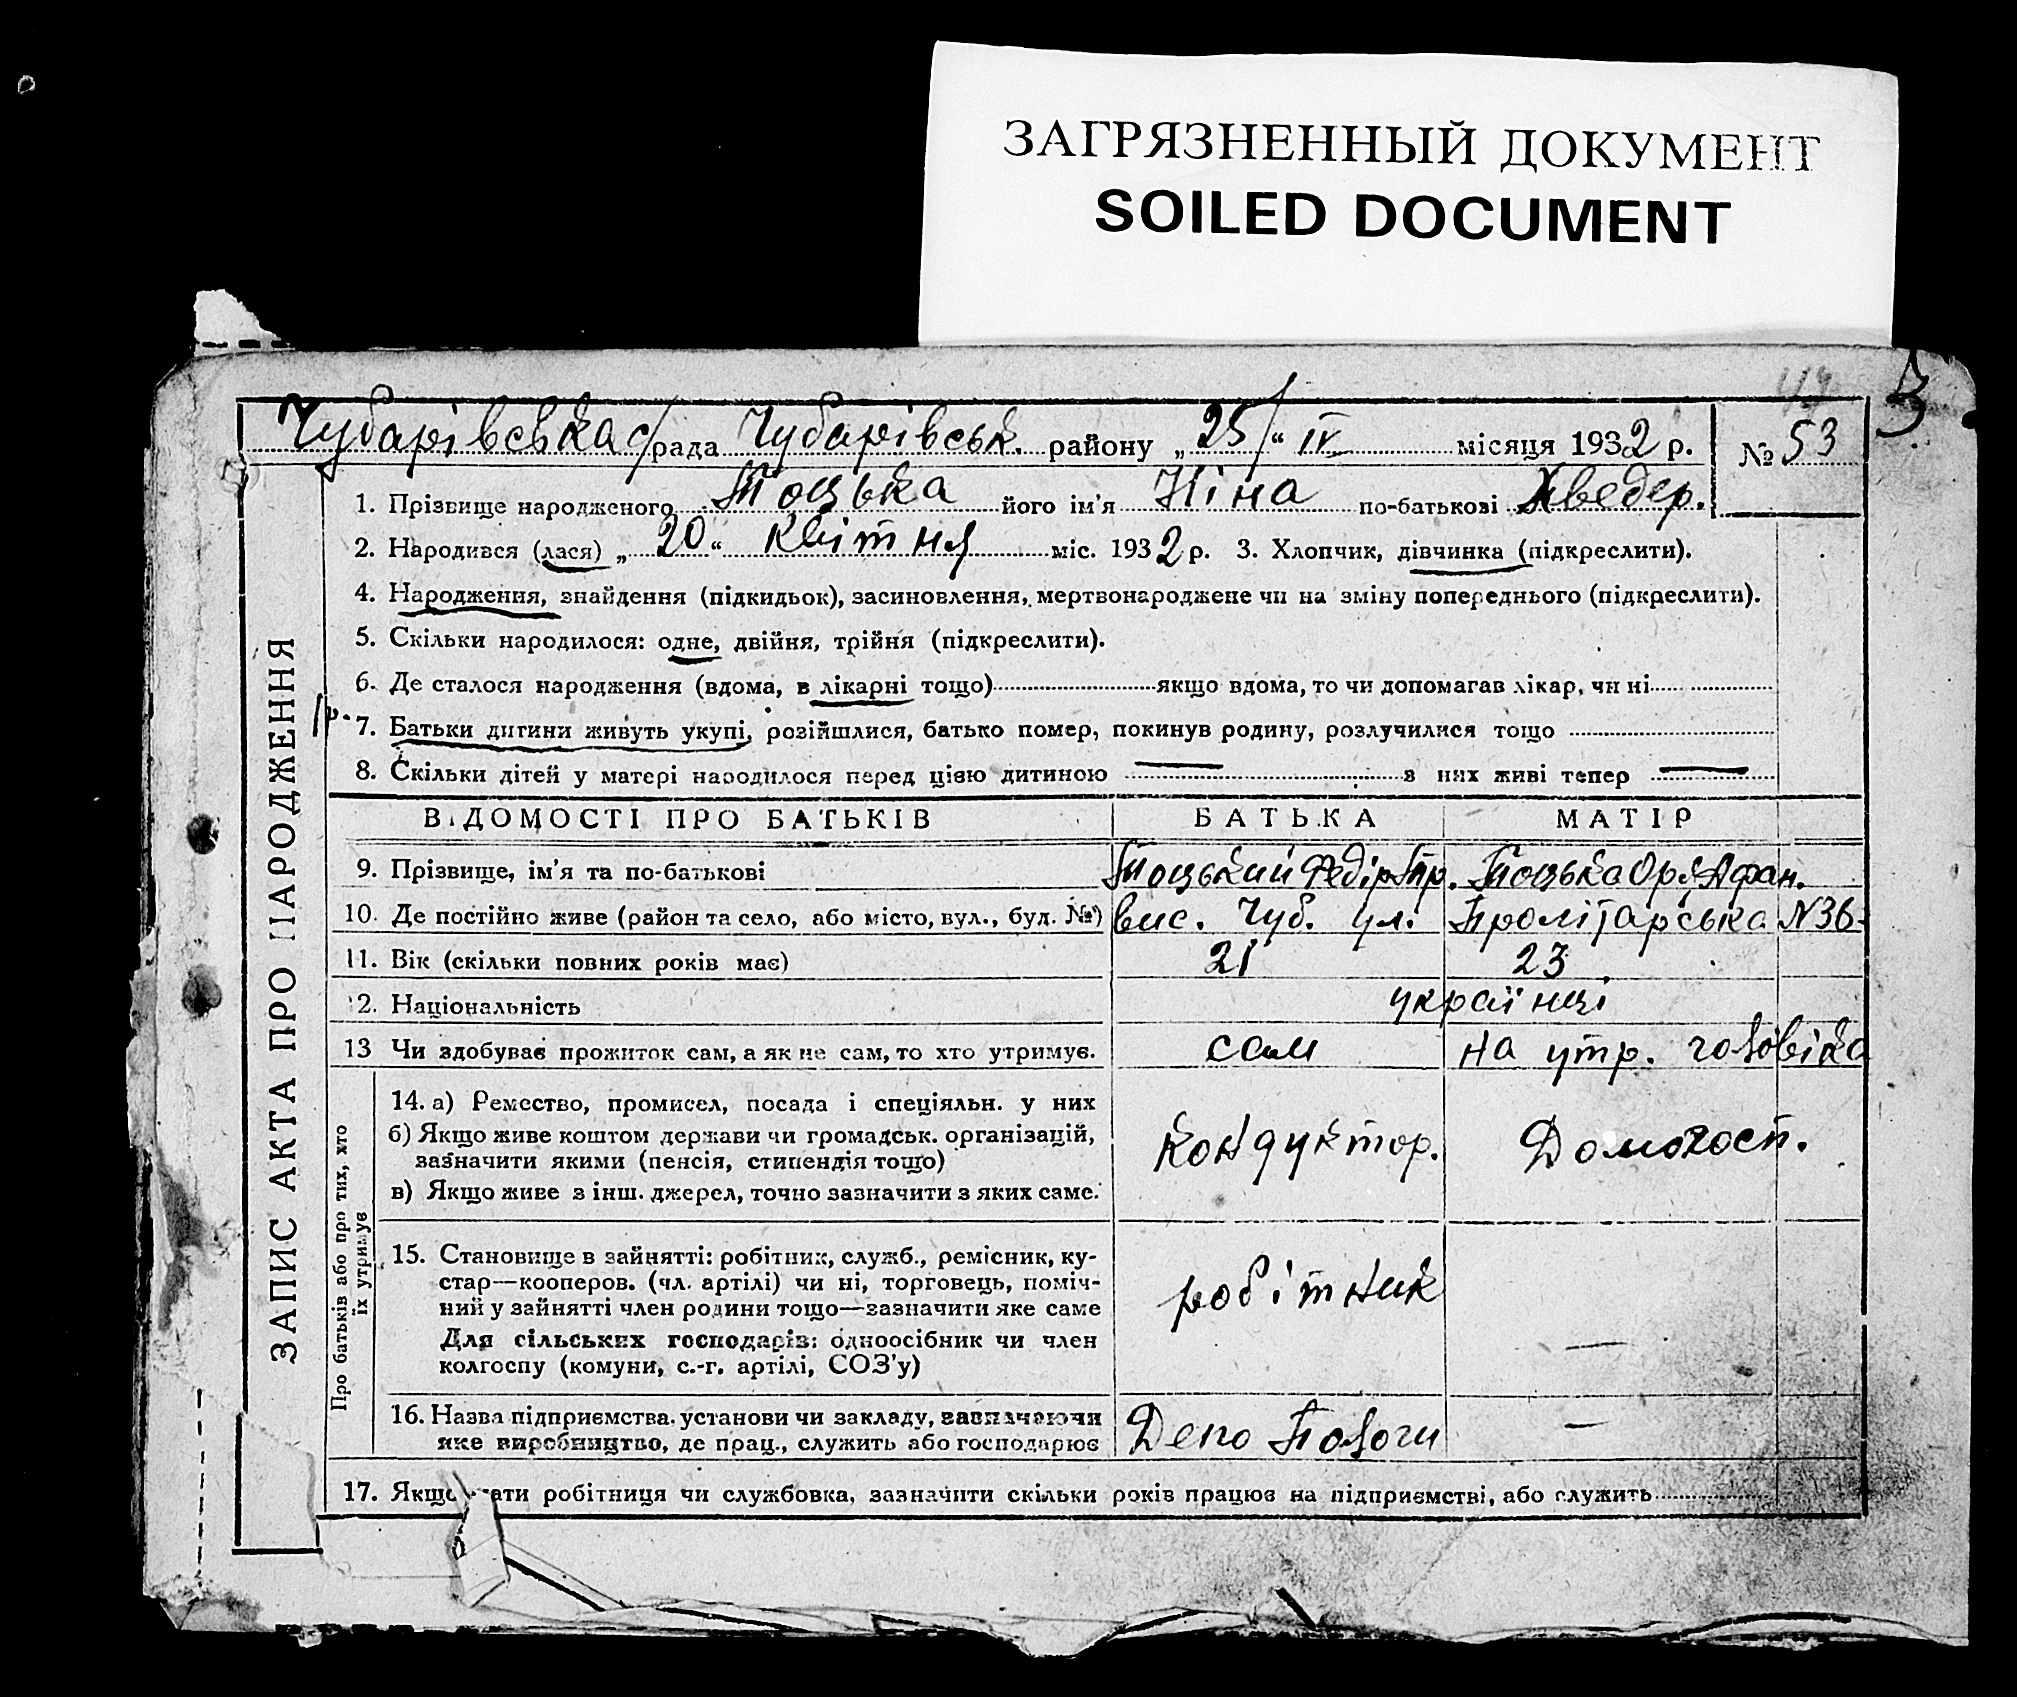 ЗАГРЯЗНЕННЫЙ ДОКУМЕНТ
SOILED DOCUMENT
3
Чубарівська с/рада Чубарівськ. району „25/“ IV місяця 1932 р. № 53
1. Прізвище народженого Тоцька його ім'я Ніна по-батькові Хведер.
2. Народився (лася) „20“ квітня міс. 1932 р. 3. Хлопчик, дівчинка (підкреслити).
4. Народження, знайдення (підкидьок), засиновлення, мертвонароджене чи на зміну попереднього (підкреслити).
5. Скільки народилося: одне, двійня, трійня (підкреслити).
6. Де сталося народження (вдома, в лікарні тощо) якщо вдома, то чи допомагав лікар, чи ні
7. Батьки дитини живуть укупі, розійшлися, батько помер, покинув родину, розлучилися тощо
8. Скільки дітей у матері народилося перед цією дитиною — з них живі тепер —
ЗАПИС АКТА ПРО НАРОДЖЕННЯ
ВІДОМОСТІ ПРО БАТЬКІВ БАТЬКА МАТІР
9. Прізвище, ім'я та по-батькові Тоцький Федір Тоцька Афан.
10. Де постійно живе (район та село, або місто, вул., буд. №) вис. Чуб. ул. Пролітарська N 36
11. Вік (скільки повних років має) 21 23
12. Національність українці
13 Чи здобуває прожиток сам, а як не сам, то хто утримує. сам на утр. чоловіка
Про батьків або про тих, хто
їх утримує
14. а) Ремество, промисел, посада і спеціяльн. у них
б) Якщо живе коштом держави чи громадськ. організацій,
зазначити якими (пенсія, стипендія тощо)
в) Якщо живе з інш. джерел, точно зазначити з яких саме.
кондуктор. Домогосп.
15. Становище в зайнятті: робітник, служб., ремісник, ку-
стар—кооперов. (чл. артілі) чи ні, торговець, поміч-
ний у зайнятті член родини тощо—зазначити яке саме
Для сільських господарів: одноосібник чи член
колгоспу (комуни, с.-г. артілі, СОЗ'у)
робітник —
16. Назва підприємства, установи чи закладу, зазначаючи
яке виробництво, де прац., служить або господарює
Депо Пологи —
17. Якщо мати робітниця чи службовка, зазначити скільки років працює на підприємстві, або служить